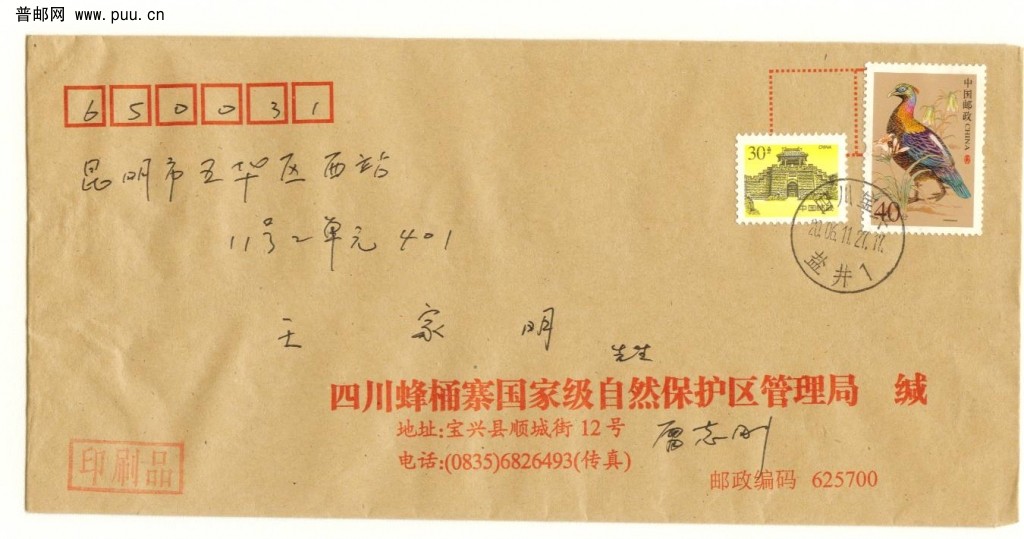 普邮网 www.puu.cn
650031
昆明市五华区西站
11号2单元 401
王家明
先生
30分
CHINA
中国邮政
中国邮政 CHINA
40
四川
2006.11.21.17
盐井1
四川蜂桶寨国家级自然保护区管理局 缄
地址:宝兴县顺城街 12 号
志刚
电话:(0835)6826493(传真)
邮政编码 625700
印刷品